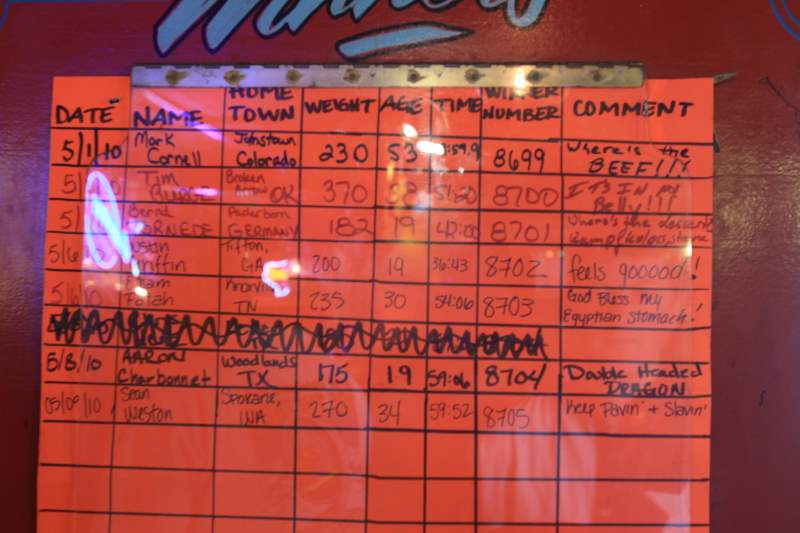 Winners
DATE NAME HOME TOWN WEIGHT AGE TIME WINNER NUMBER COMMENT
5/1/10 Mark Cornell Johnstown Colorado 230 53 8699 Where's the BEEF!!!
Tim Broken Arrow OK 370 8700 IT'S IN my Belly!!!
Bernd Paderborn GERMANY 182 19 42:00 8701 Where's the dessert
Griffin Tifton, GA 200 19 36:43 8702 feels gooood!
Farah TN 235 30 54:06 8703 God Bless my Egyptian stomach!
5/8/10 AARON Charbonnet Woodlands TX 175 19 59:06 8704 Double Headed DRAGON
05/09/10 Sean Weston Spokane, WA 270 34 59:52 8705 Keep Pavin' + Slavin'